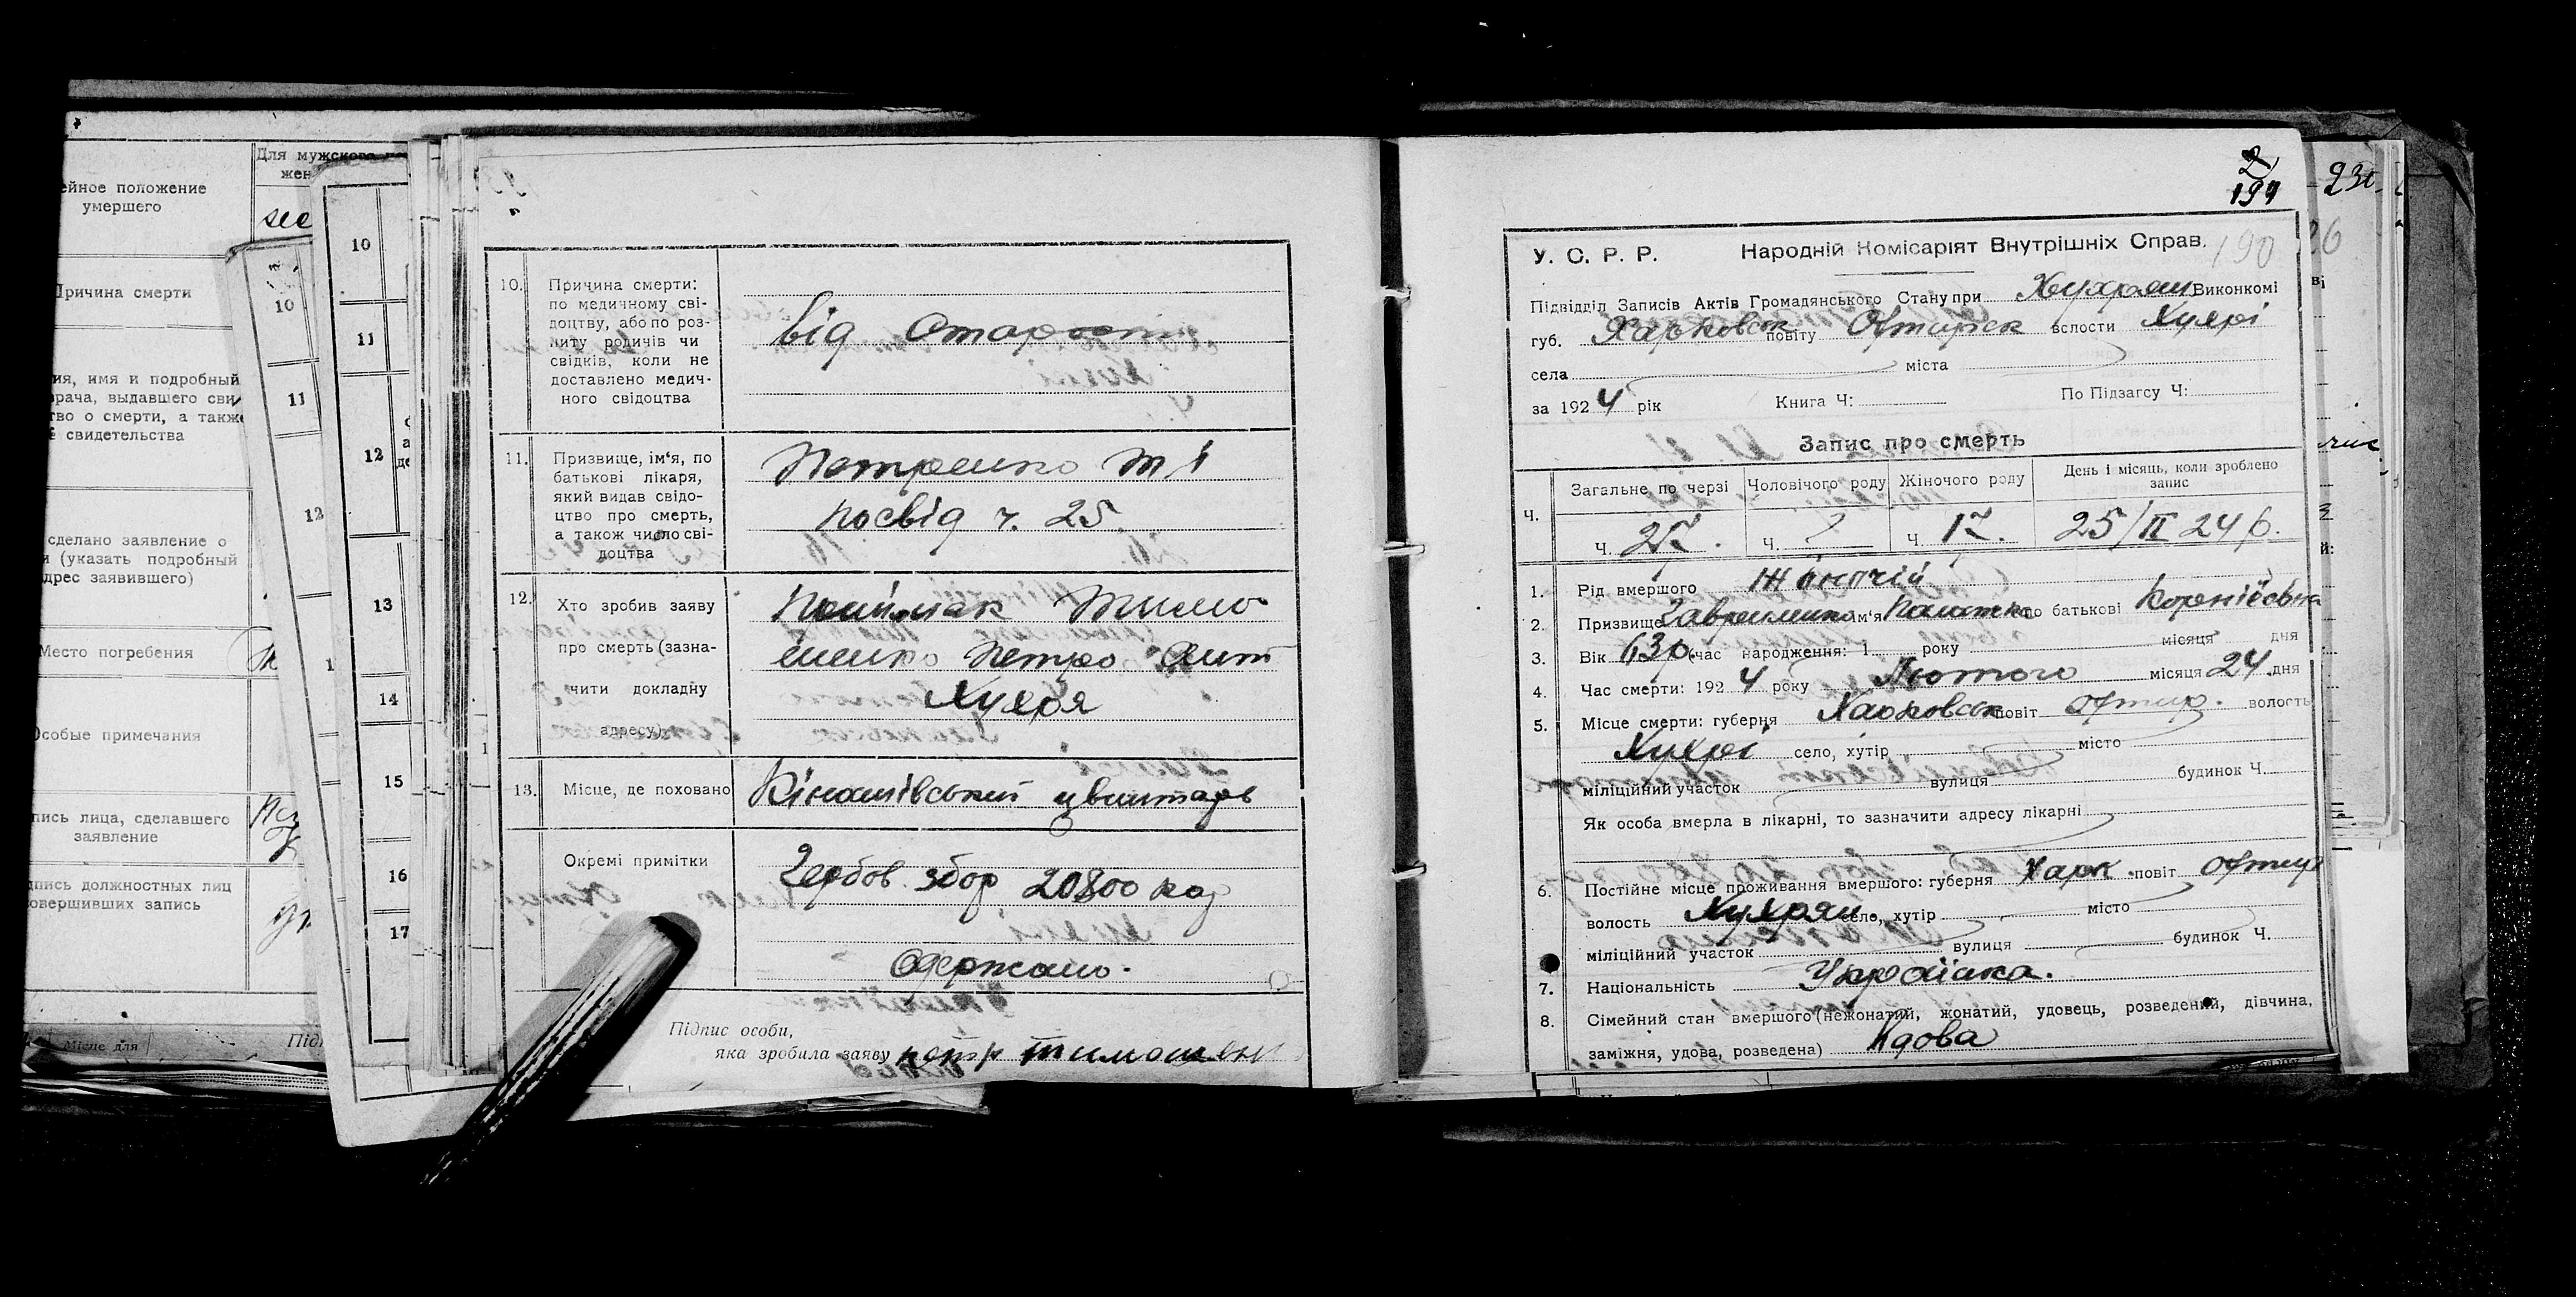 Для мужского
жен
ейное положение
умершего
Причина смерти
ия, имя и подробный
врача, выдавшего сви
тво о смерти, а также
свидетельства
сделано заявление о
и (указать подробный
дрес заявившего)
Место погребения
Особые примечания
пись лица, сделавшего
заявление
дпись должностных лиц
овершивших запись
Місце для
Підп
10
11
12
1
10
11
12
13
14
15
16
17
10. Причина смерти:
по медичному сві-
доцтву, або по роз-
питу родичів чи
свідків, коли не
доставлено медич-
ного свідоцтва
від старости
11. Призвище, ім'я, по
батькові лікаря,
який видав свідо-
цтво про смерть,
а також число сві-
доцтва
Петренко
посвід ч. 25.
12. Хто зробив заяву
про смерть (зазна-
чити докладну
адресу)
Тимо
шенко Петро Ант
Хухря
13. Місце, де поховано
цвинтарь
Окремі примітки
Гербов. збор 20800 кар
Одержано.
Підпис особи,
яка зробила заяву петр тимошенк
2
194
190
У. С. Р. Р. Народній Комісаріят Внутрішніх Справ.
Підвідділ Записів Актів Громадянського Стану при Хухрян Виконкомі
губ. Харковськ повіту Охтирськ волости Хухрі
села міста
за 1924 рік Книга Ч: По Підзагсу Ч:
Запис про смерть
Ч. Загальне по черзі Чоловічого роду Жіночого роду День і місяць, коли зроблено
запис
Ч. 27. Ч. Ч. 17. 25/II 24 р.
1. Рід вмершого Жіночій
2. Призвище Гавриленко ім'я Палажка по батькові Корніївна
3. Вік 63 р. (час народження: 1 року місяця дня
4. Час смерти: 1924 року Лютого місяця 24 дня
5. Місце смерти: губерня Харковськ повіт Охтир. волость
Хухрі село, хутір місто
міліційний участок вулиця будинок Ч.
Як особа вмерла в лікарні, то зазначити адресу лікарні
6. Постійне місце проживання вмершого: губерня Харк. повіт Охтир
волость Хухрян село, хутір місто
міліційний участок вулиця будинок Ч.
7. Національність Українка.
8. Сімейний стан вмершого (нежонатий, жонатий, удовець, розведений, дівчина,
заміжня, удова, розведена) Вдова
230
26